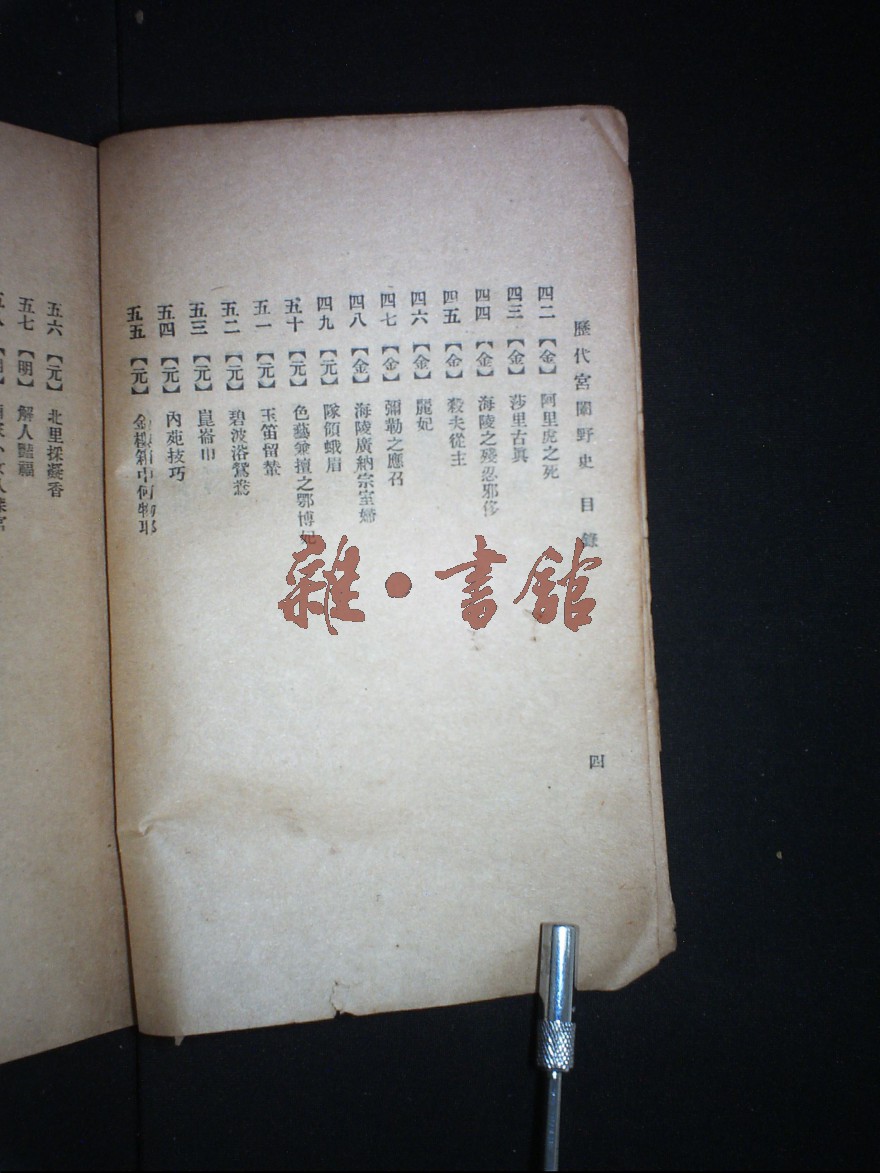 歷代宮闈野史 目錄 四
四二 【金】 阿里虎之死
四三 【金】 莎里古眞
四四 【金】 海陵之殘忍邪侈
四五 【金】 殺夫從主
四六 【金】 麗妃
四七 【金】 彌勒之應召
四八 【金】 海陵廣納宗室婦
四九 【元】 隊領蛾眉
五十 【元】 色藝兼擅之鄂博妃
五一 【元】 玉笛留輦
五二 【元】 碧波浴鴛鴦
五三 【元】 崑崙印
五四 【元】 內苑技巧
五五 【元】 金櫻箱中何物耶
五六 【元】 北里採凝香
五七 【明】 解人豔福
五八 【明】
雜·書館